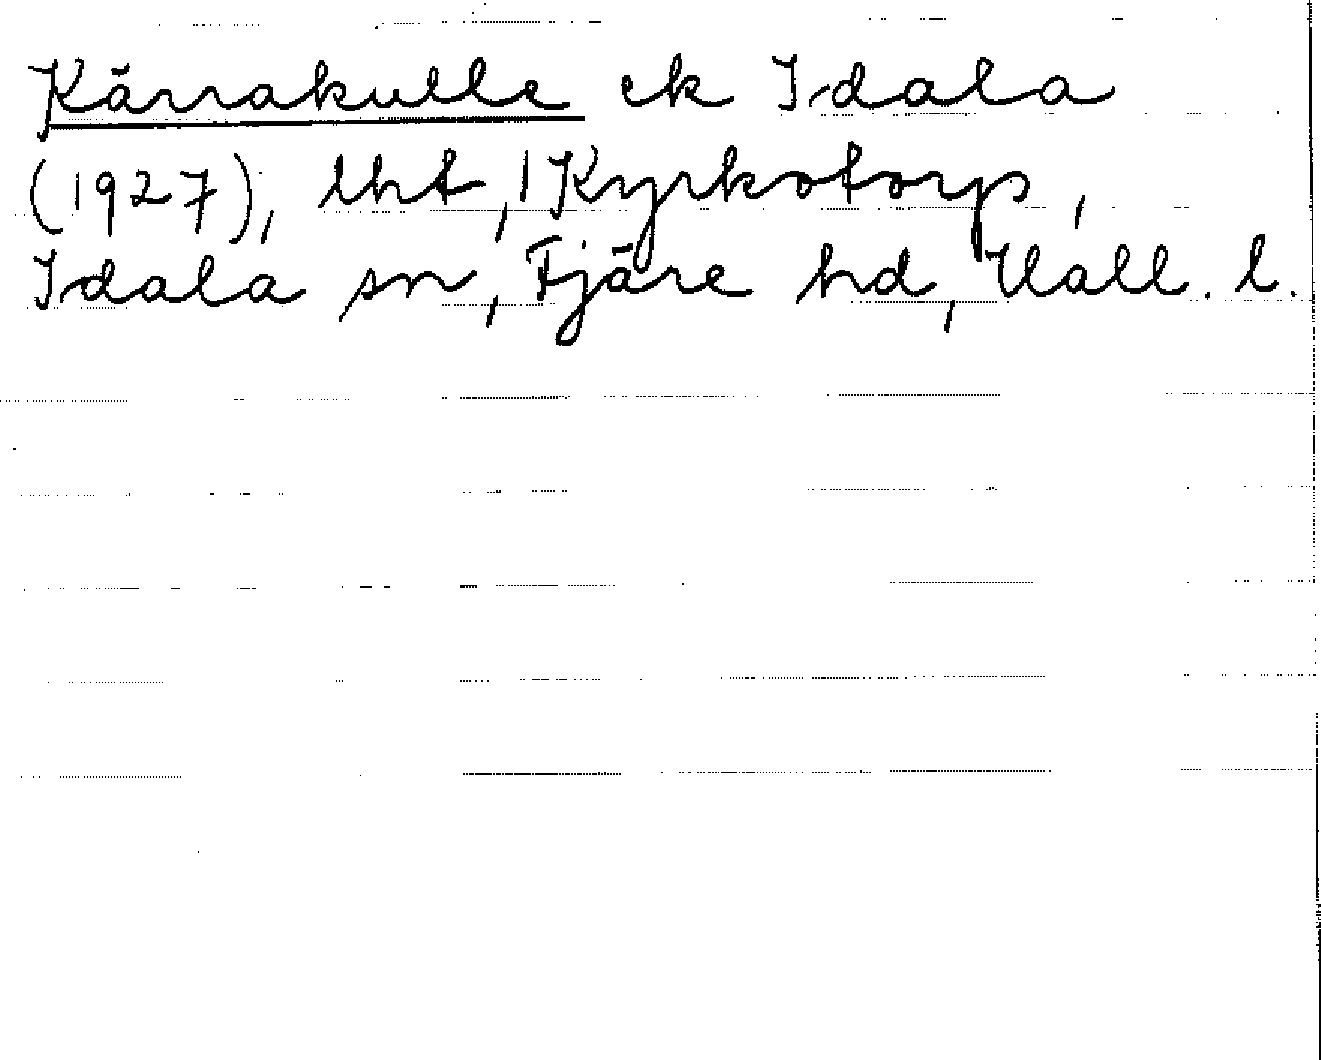 Kärrakulle ek Idala
(1927), lht, 1 Kyrkotorp,
Idala sn, Fjäre hd, Hall. l.